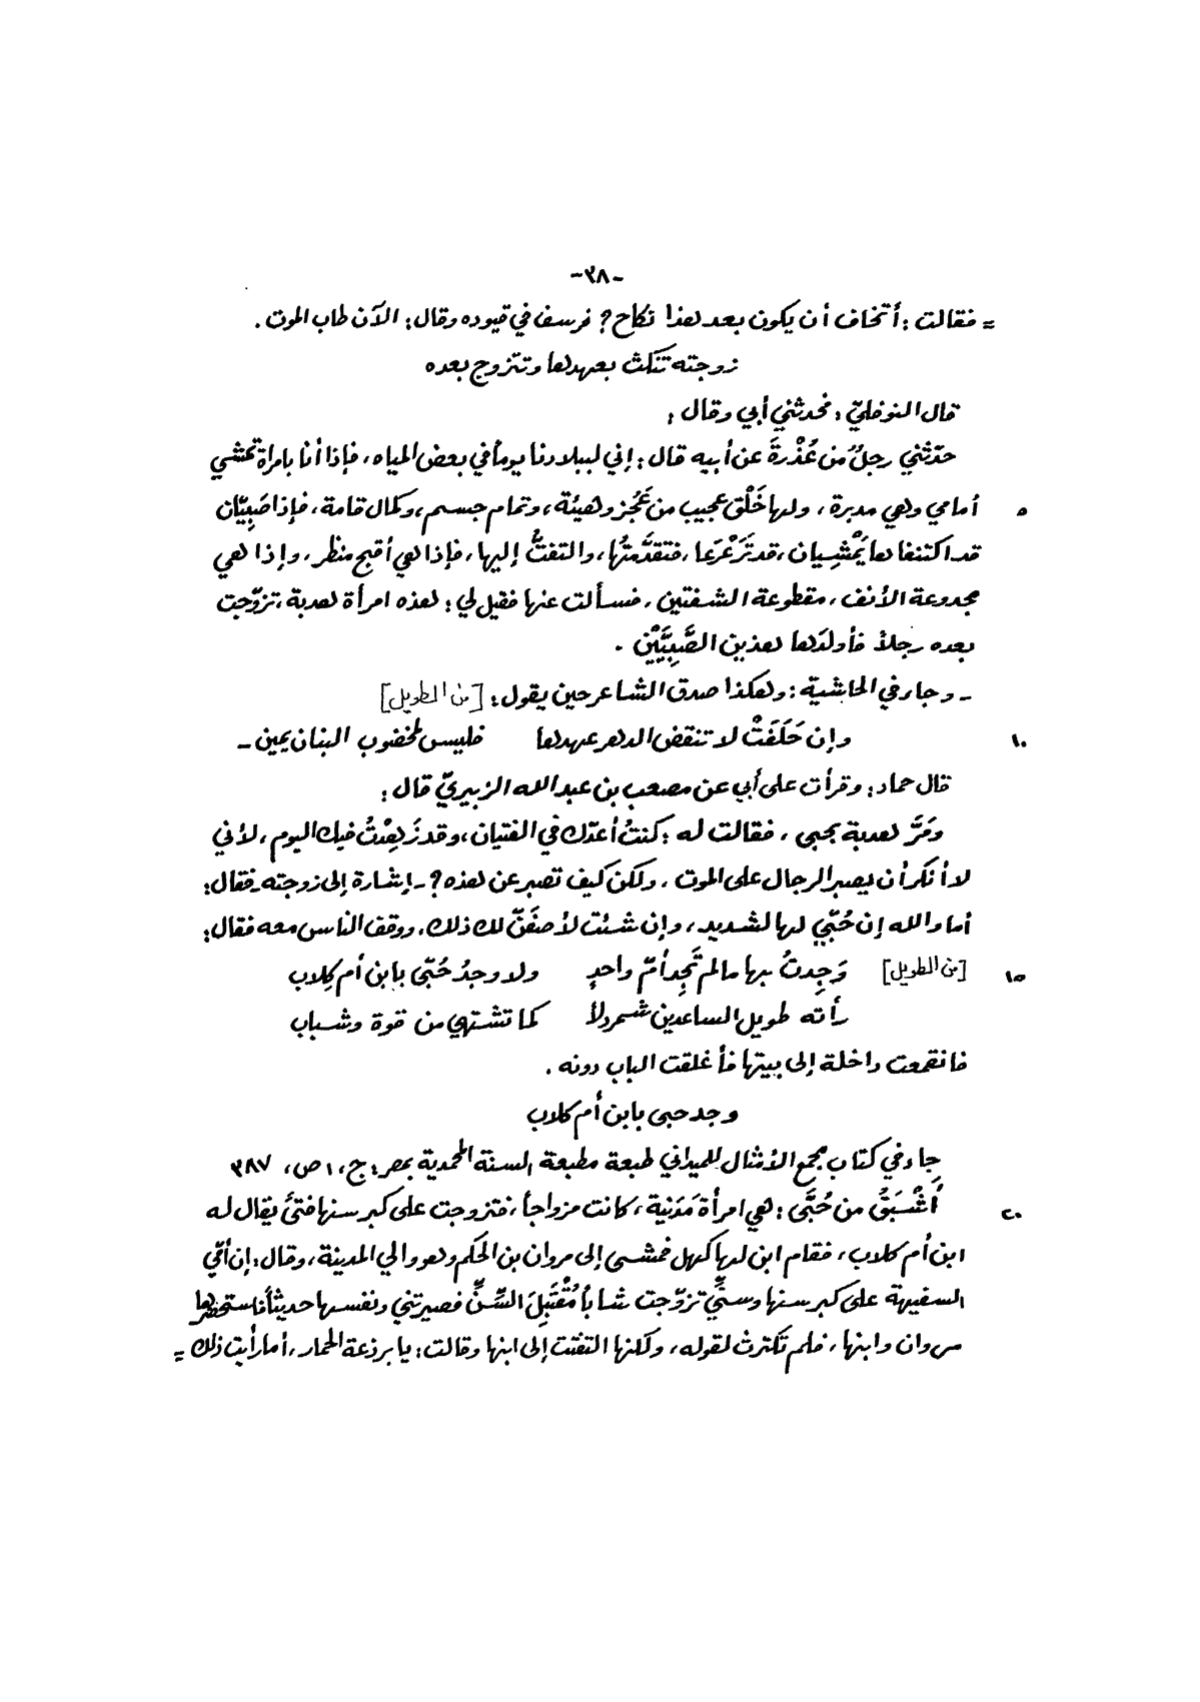 -٣٨-
= فقالت : أتخاف أن يكون بعد هذا نكاح ؟ فرسف في قيوده وقال : الآن طاب الموت .
زوجته تنكث بعهدها وتتزوج بعده
قال النوفليّ : فحدثني أبي وقال :
حدّثني رجلٌ من عُذْرةَ عن أبيه قال : إني لببلادنا يوماً في بعض المياه ، فإذا أنا بامرأة تمشي
٥ أمامي وهي مدبرة ، ولها خَلْق عجيب من عَجُز وهيئة ، وتمام جسم ، وكمال قامة ، فإذا صَبِيّان
قد اكتنفاها يَمْشِيان ، قد تَرَعْرَعا ، فتقدَّمتُها ، والتفتُّ إليها ، فإذا هي أقبح منظر ، وإذا هي
مجدوعة الأنف ، مقطوعة الشفتين ، فسألت عنها فقيل لي : هذه امرأة هدبة ، تزوّجت
بعده رجلاً فأولدَها هذين الصَّبِيَّيْن .
- وجاء في الحاشية : وهكذا صدق الشاعر حين يقول : [من الطويل]
١٠ وإن حَلَفَتْ لا تنقض الدهر عهدها فليس لمخضوب البنان يمين -
قال حماد : وقرأت على أبي عن مصعب بن عبد الله الزبيريّ قال :
ومَرَّ هدبة بحبى ، فقالت له : كنتُ أعدّك في الفتيان ، وقد زَهِدْتُ فيك اليوم ، لأني
لا أنكر أن يصبر الرجال على الموت ، ولكن كيف تصبر عن هذه ؟ - إشارة إلى زوجته - فقال :
أما والله إن حُبّي لها لشديد ، وإن شئت لأصفَنّ لك ذلك . ووقف الناس معه فقال :
١٥ [من الطويل] وَجِدتُ بها ما لم تَجِد أمّ واحدٍ ولا وجدُ حُبّى بابن أم كِلاب
رأته طويل الساعدين شمردلاً كما تشتهي من قوة وشباب
فانقمعت داخلة إلى بيتها فأغلقت الباب دونه .
وجد حبى بابن أم كلاب
جاء في كتاب مجمع الأمثال للميداني طبعة مطبعة السنة المحمدية بمصر : ج ، ١ ص ، ٣٨٧
٢٠ أشْبَقُ من حُبَّى : هي امرأة مَدَنية ، كانت مزواجاً ، فتزوجت على كبر سنها فتىً يقال له
ابن أم كلاب ، فقام ابن لها كهل فمشى إلى مروان بن الحكم وهو والي المدينة ، وقال : إن أمّي
السفيهة على كبر سنها وسنِّي تزوّجت شاباً مُقْتَبِلَ السِّنِّ فصيرتني ونفسها حديثاً فاستحضرها
مروان وابنها ، فلم تكترث لقوله ، ولكنها التفتت إلى ابنها وقالت : يا برذعة الحمار ، أما رأيت ذلك =